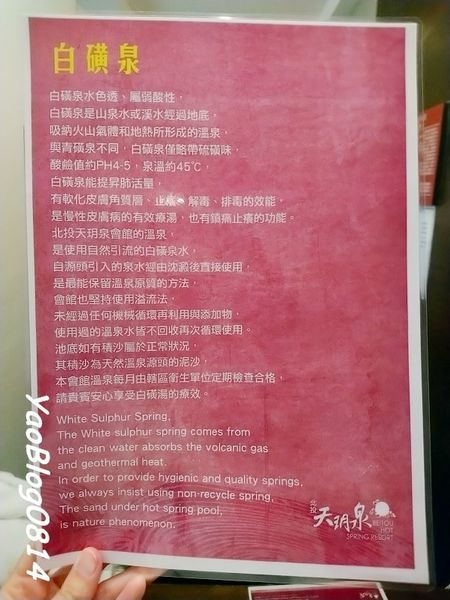 白磺泉
白磺泉水色透、屬弱酸性，
白磺泉是山泉水或溪水經過地底，
吸納火山氣體和地熱所形成的溫泉，
與青磺泉不同，白磺泉僅略帶硫磺味，
酸鹼值約PH4-5，泉溫約45℃，
白磺泉能提昇肺活量，
有軟化皮膚角質層、止癢、解毒、排毒的效能，
是慢性皮膚病的有效療湯，也有鎮痛止癢的功能。
北投天玥泉會館的溫泉，
是使用自然引流的白磺泉水，
自源頭引入的泉水經由沈澱後直接使用，
是最能保留溫泉原質的方法，
會館也堅持使用溢流法，
未經過任何機械循環再利用與添加物，
使用過的溫泉水皆不回收再次循環使用。
池底如有積沙屬於正常狀況，
其積沙為天然溫泉源頭的泥沙，
本會館溫泉每月由轄區衛生單位定期檢查合格，
請貴賓安心享受白磺湯的療效。
White Sulphur Spring,
The White sulphur spring comes from
the clean water absorbs the volcanic gas
and geothermal heat.
In order to provide hygienic and quality springs,
we always insist using non-recycle spring,
The sand under hot spring pool,
is nature phenomenon.
北投
天玥泉
BEITOU
HOT
SPRING RESORT
YaoBlog0814